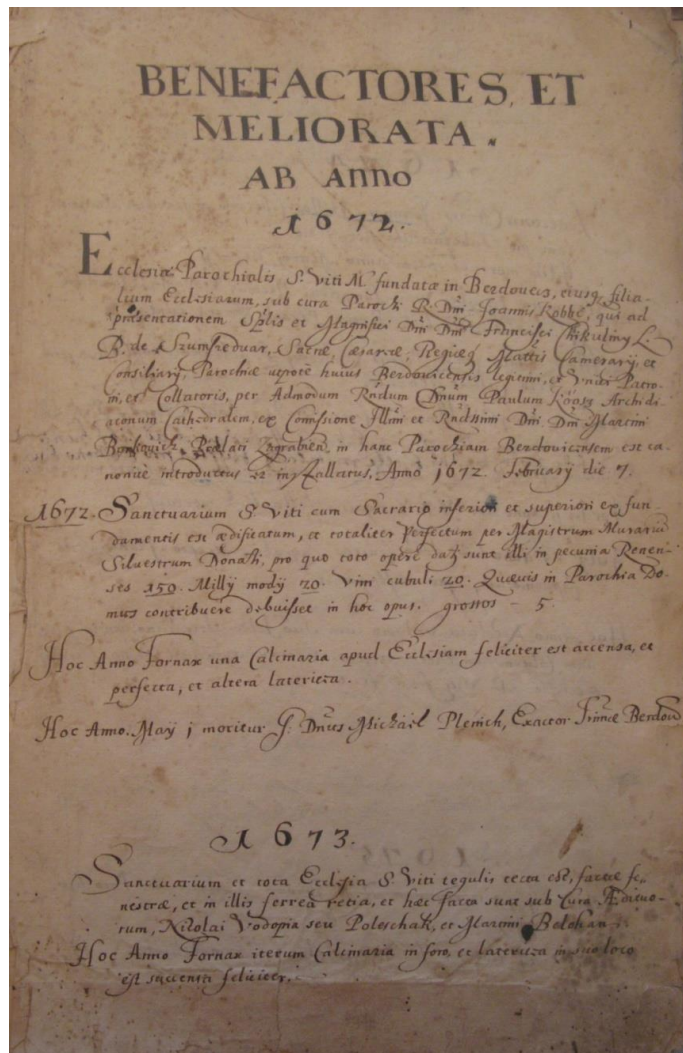 BENEFACTORES, ET
MELIORATA.
AB Anno
1672.
Ecclesiæ Parochialis S. Viti M. fundatæ in Berdovecz, eiusq filia-
lium Ecclesiarum, sub cura Parochi R. Dni Joannis Kobbe, qui ad
præsentationem Splis et Magnifici Dni Dni Francisci Chikuliny L.
B. de Szumszeduar, Sacræ, Cæsareæ, Regiæq Mattis Camerarij, et
Consiliarij, Parochiæ utpote huius Berdovicensis legitimi, et Unici Patro-
ni, et Collatoris, per Admodum Rndum Dnum Paulum Archidi
aconum Cathedralem, ex Comissione Illmi et Rndssimi Dni Dni Martini
in hanc Parochiam Berdovicensem est ca-
nonice introductus et installatus, Anno 1672. February die 7.
1672. Sanctuarium S. Viti cum Sacrario inferiori et superiori ex fun-
damentis est ædificatum, et totaliter perfectum per Magistrum Murariū
Silvestrum Donati, pro quo toto opere datj sunt illi in pecunia Renen-
ses 150. Milly modij 20. Vini cubuli 20. Quævis in Parochia Do-
mus contribuere debuisset in hoc opus. grossos - 5.
Hoc Anno Fornax una Calcinaria apud Ecclesiam feliciter est accensa, et
perfecta, et altera lateritza.
Hoc Anno. May j moritur G: Dnus Michael Plemich, Exactor
1673.
Sanctuarium et tota Ecclesia S. Viti tegulis tecta est, factæ fe-
nestræ, et in illis ferrea retia, et hæc facta sunt sub Cura Ædituo-
rum, Nicolai Vodopia seu Poleschak, et Martini Belohan.
Hoc Anno Fornax iterum Calcinaria in foro, et lateritza in suo loco
est succensa feliciter.